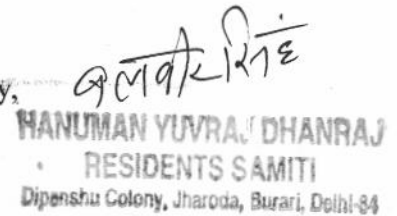 बलवीर सिंह
y,
HANUMAN YUVRAJ DHANRAJ
RESIDENTS SAMITI
Dipanshu Colony, Jharoda, Burari, Delhi-84